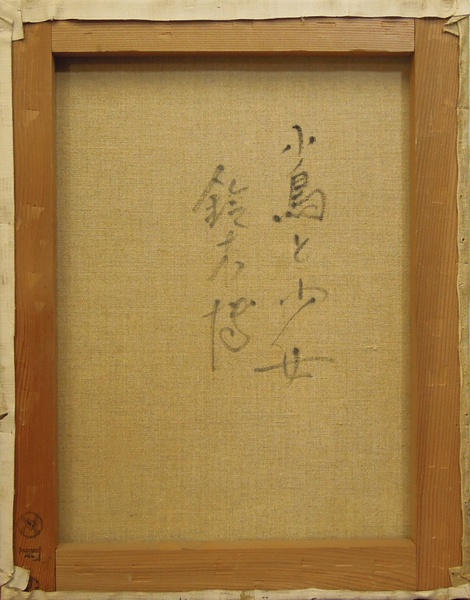 小鳥と少女
鈴木博